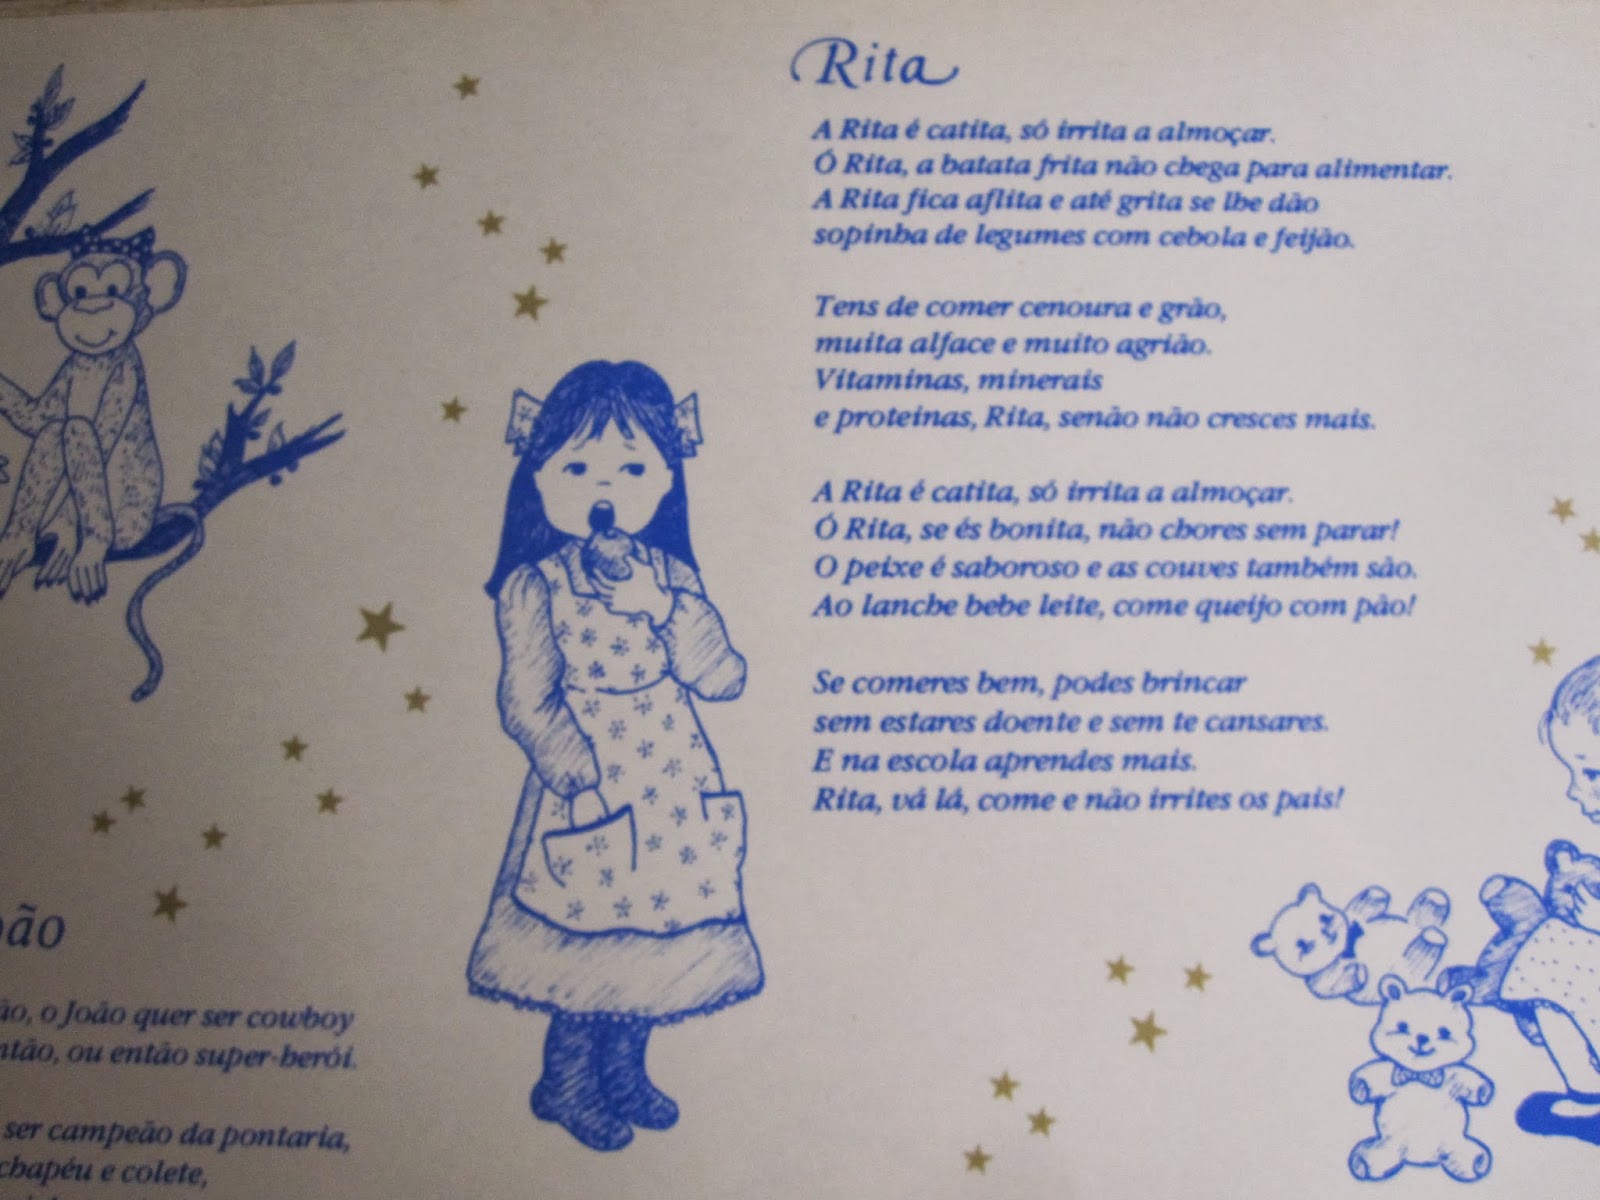 Rita
A Rita é catita, só irrita a almoçar.
Ó Rita, a batata frita não chega para alimentar.
A Rita fica aflita e até grita se lhe dão
sopinha de legumes com cebola e feijão.
Tens de comer cenoura e grão,
muita alface e muito agrião.
Vitaminas, minerais
e proteínas, Rita, senão não cresces mais.
A Rita é catita, só irrita a almoçar.
Ó Rita, se és bonita, não chores sem parar!
O peixe é saboroso e as couves também são.
Ao lanche bebe leite, come queijo com pão!
Se comeres bem, podes brincar
sem estares doente e sem te cansares.
E na escola aprendes mais.
Rita, vá lá, come e não irrites os pais!
oão
ão, o João quer ser cowboy
ntão, ou então super-herói.
ser campeão da pontaria,
chapéu e colete,